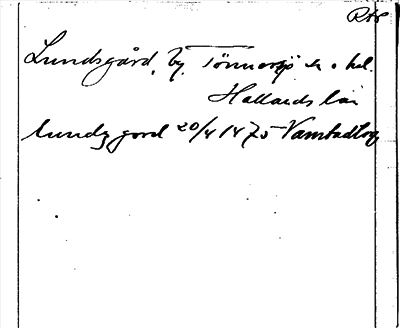 RAP
Lundsgård, by. Tönnersjö sn o hd.
Hallands län
lundz gord 20/4 1475 Vamstadtorp